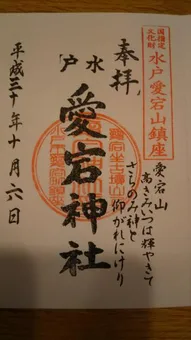 国指定
文化財
水戸愛宕山鎮座
愛宕山
高きみいつは輝やきて
さちのみ神と
仰がれにけり
奉拝
水戸
愛宕神社
平成三十年十月六日